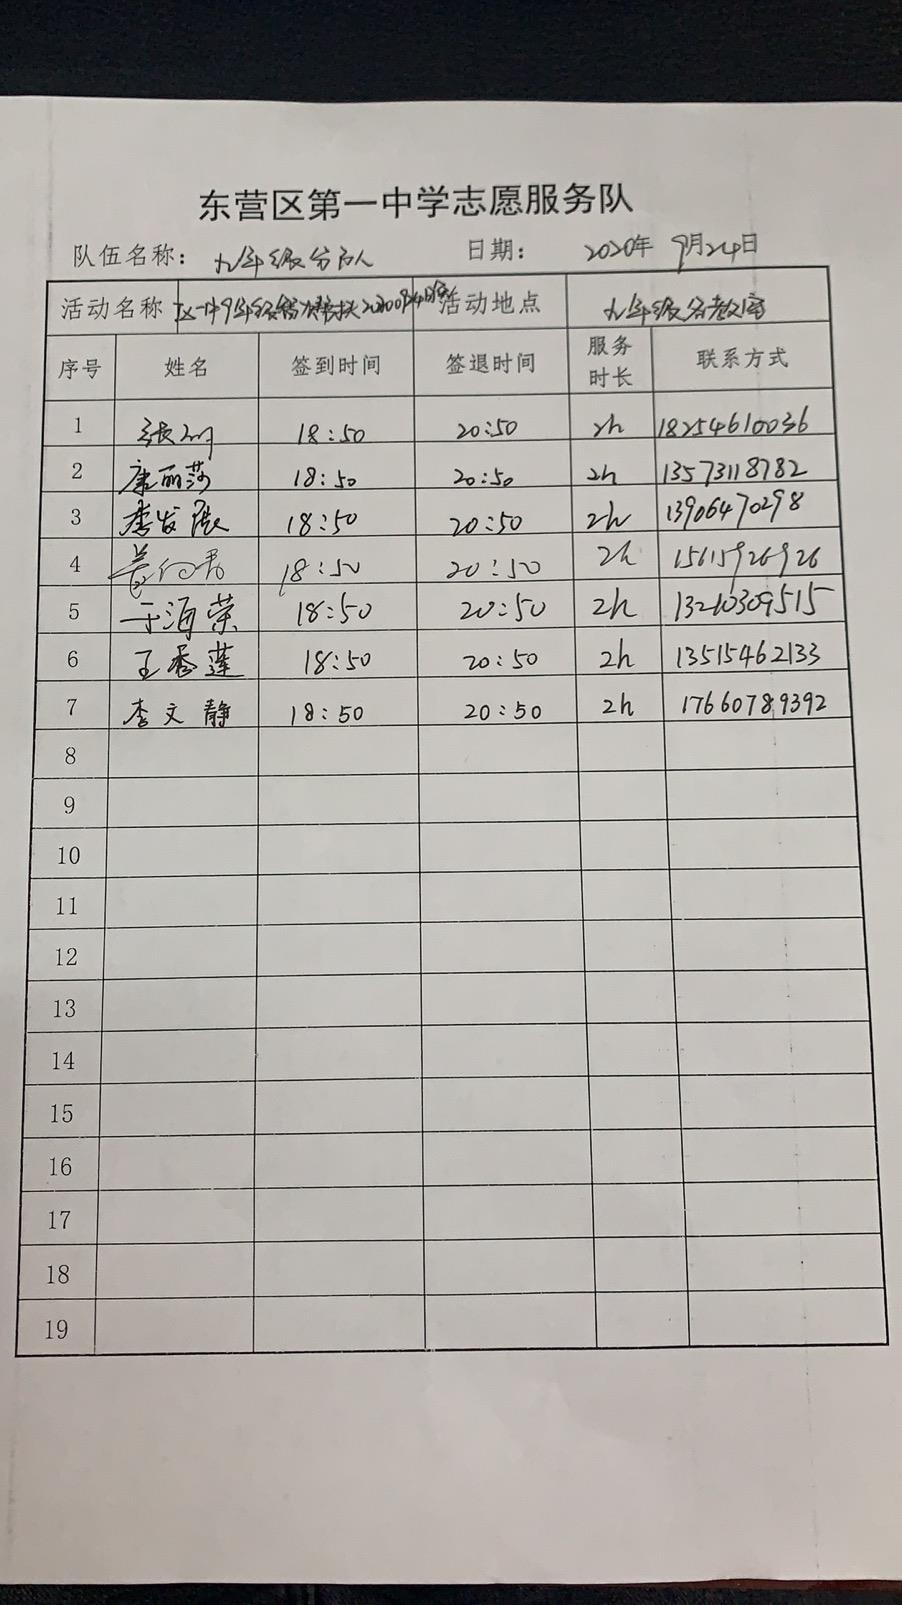 东营区第一中学志愿服务队
队伍名称： 九年级分队 日期： 2020年 9月24日
活动名称 活动地点 九年级各教室
序号 姓名 签到时间 签退时间 服务时长 联系方式
1 18:50 20:50 2h 18254610036
2 康丽莎 18:50 20:50 2h 13573118782
3 李发展 18:50 20:50 2h 13906470298
4 18:50 20:50 2h 15615926926
5 于海荣 18:50 20:50 2h 13210309515
6 王秀莲 18:50 20:50 2h 13515462133
7 李文静 18:50 20:50 2h 17660789392
8
9
10
11
12
13
14
15
16
17
18
19